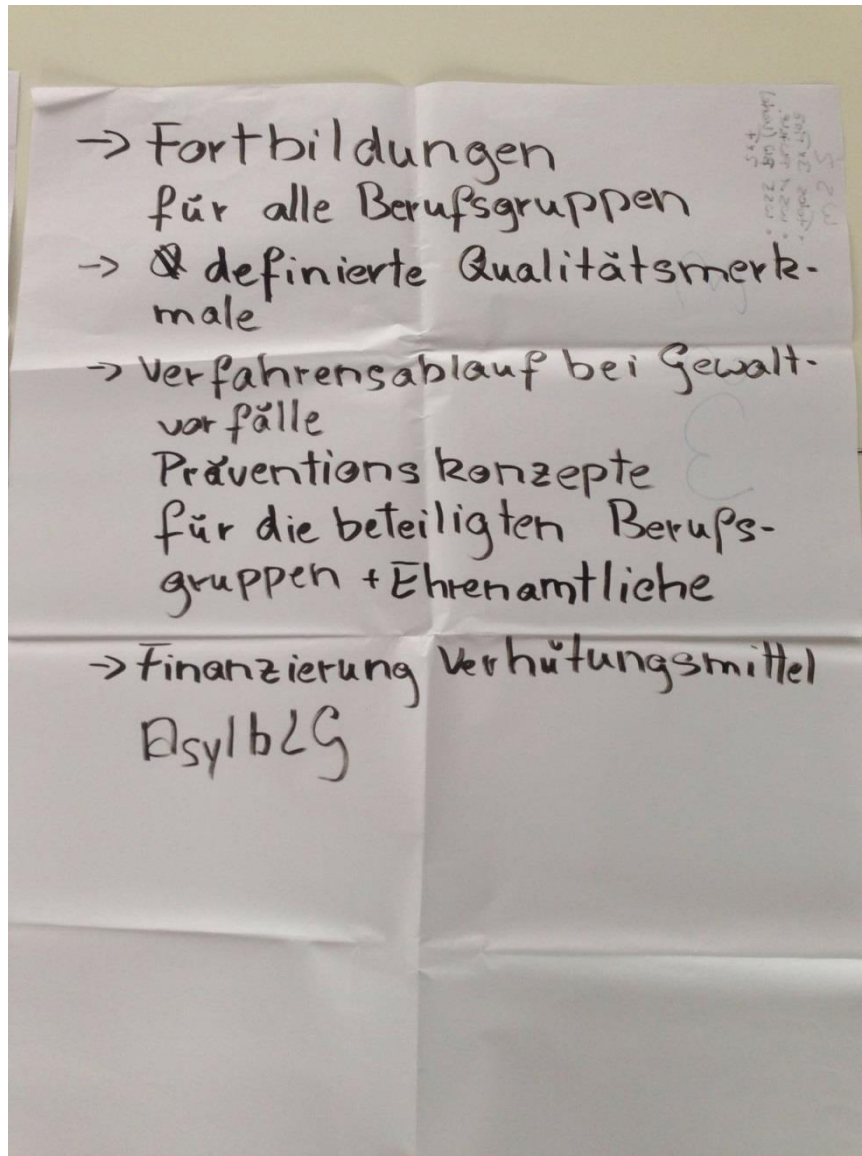 → Fortbildungen
für alle Berufsgruppen
→ definierte Qualitätsmerk-
male
→ Verfahrensablauf bei Gewalt-
vorfälle
Präventionskonzepte
für die beteiligten Berufs-
gruppen + Ehrenamtliche
→ Finanzierung Verhütungsmittel
AsylbLG